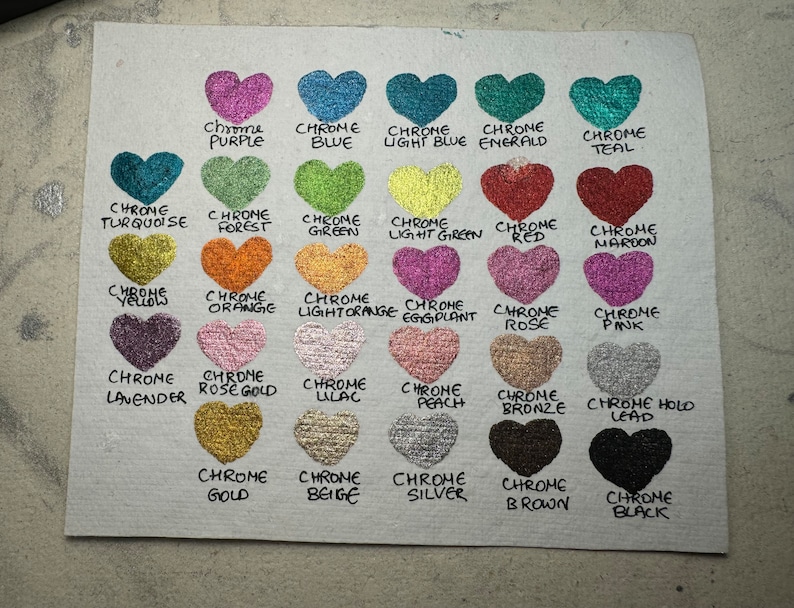 Chrome
PURPLE
CHROME
BLUE
CHROME
LIGHT BLUE
CHROME
EMERALD
CHROME
TEAL
CHROME
TURQUOISE
CHROME
FOREST
CHROME
GREEN
CHROME
LIGHT GREEN
CHROME
RED
CHROME
MAROON
CHROME
YELLOW
CHROME
ORANGE
CHROME
LIGHT ORANGE
CHROME
EGGPLANT
CHROME
ROSE
CHROME
PINK
CHROME
LAVENDER
CHROME
ROSE GOLD
CHROME
LILAC
CHROME
PEACH
CHROME
BRONZE
CHROME HOLO
LEAD
CHROME
GOLD
CHROME
BEIGE
CHROME
SILVER
CHROME
BROWN
CHROME
BLACK